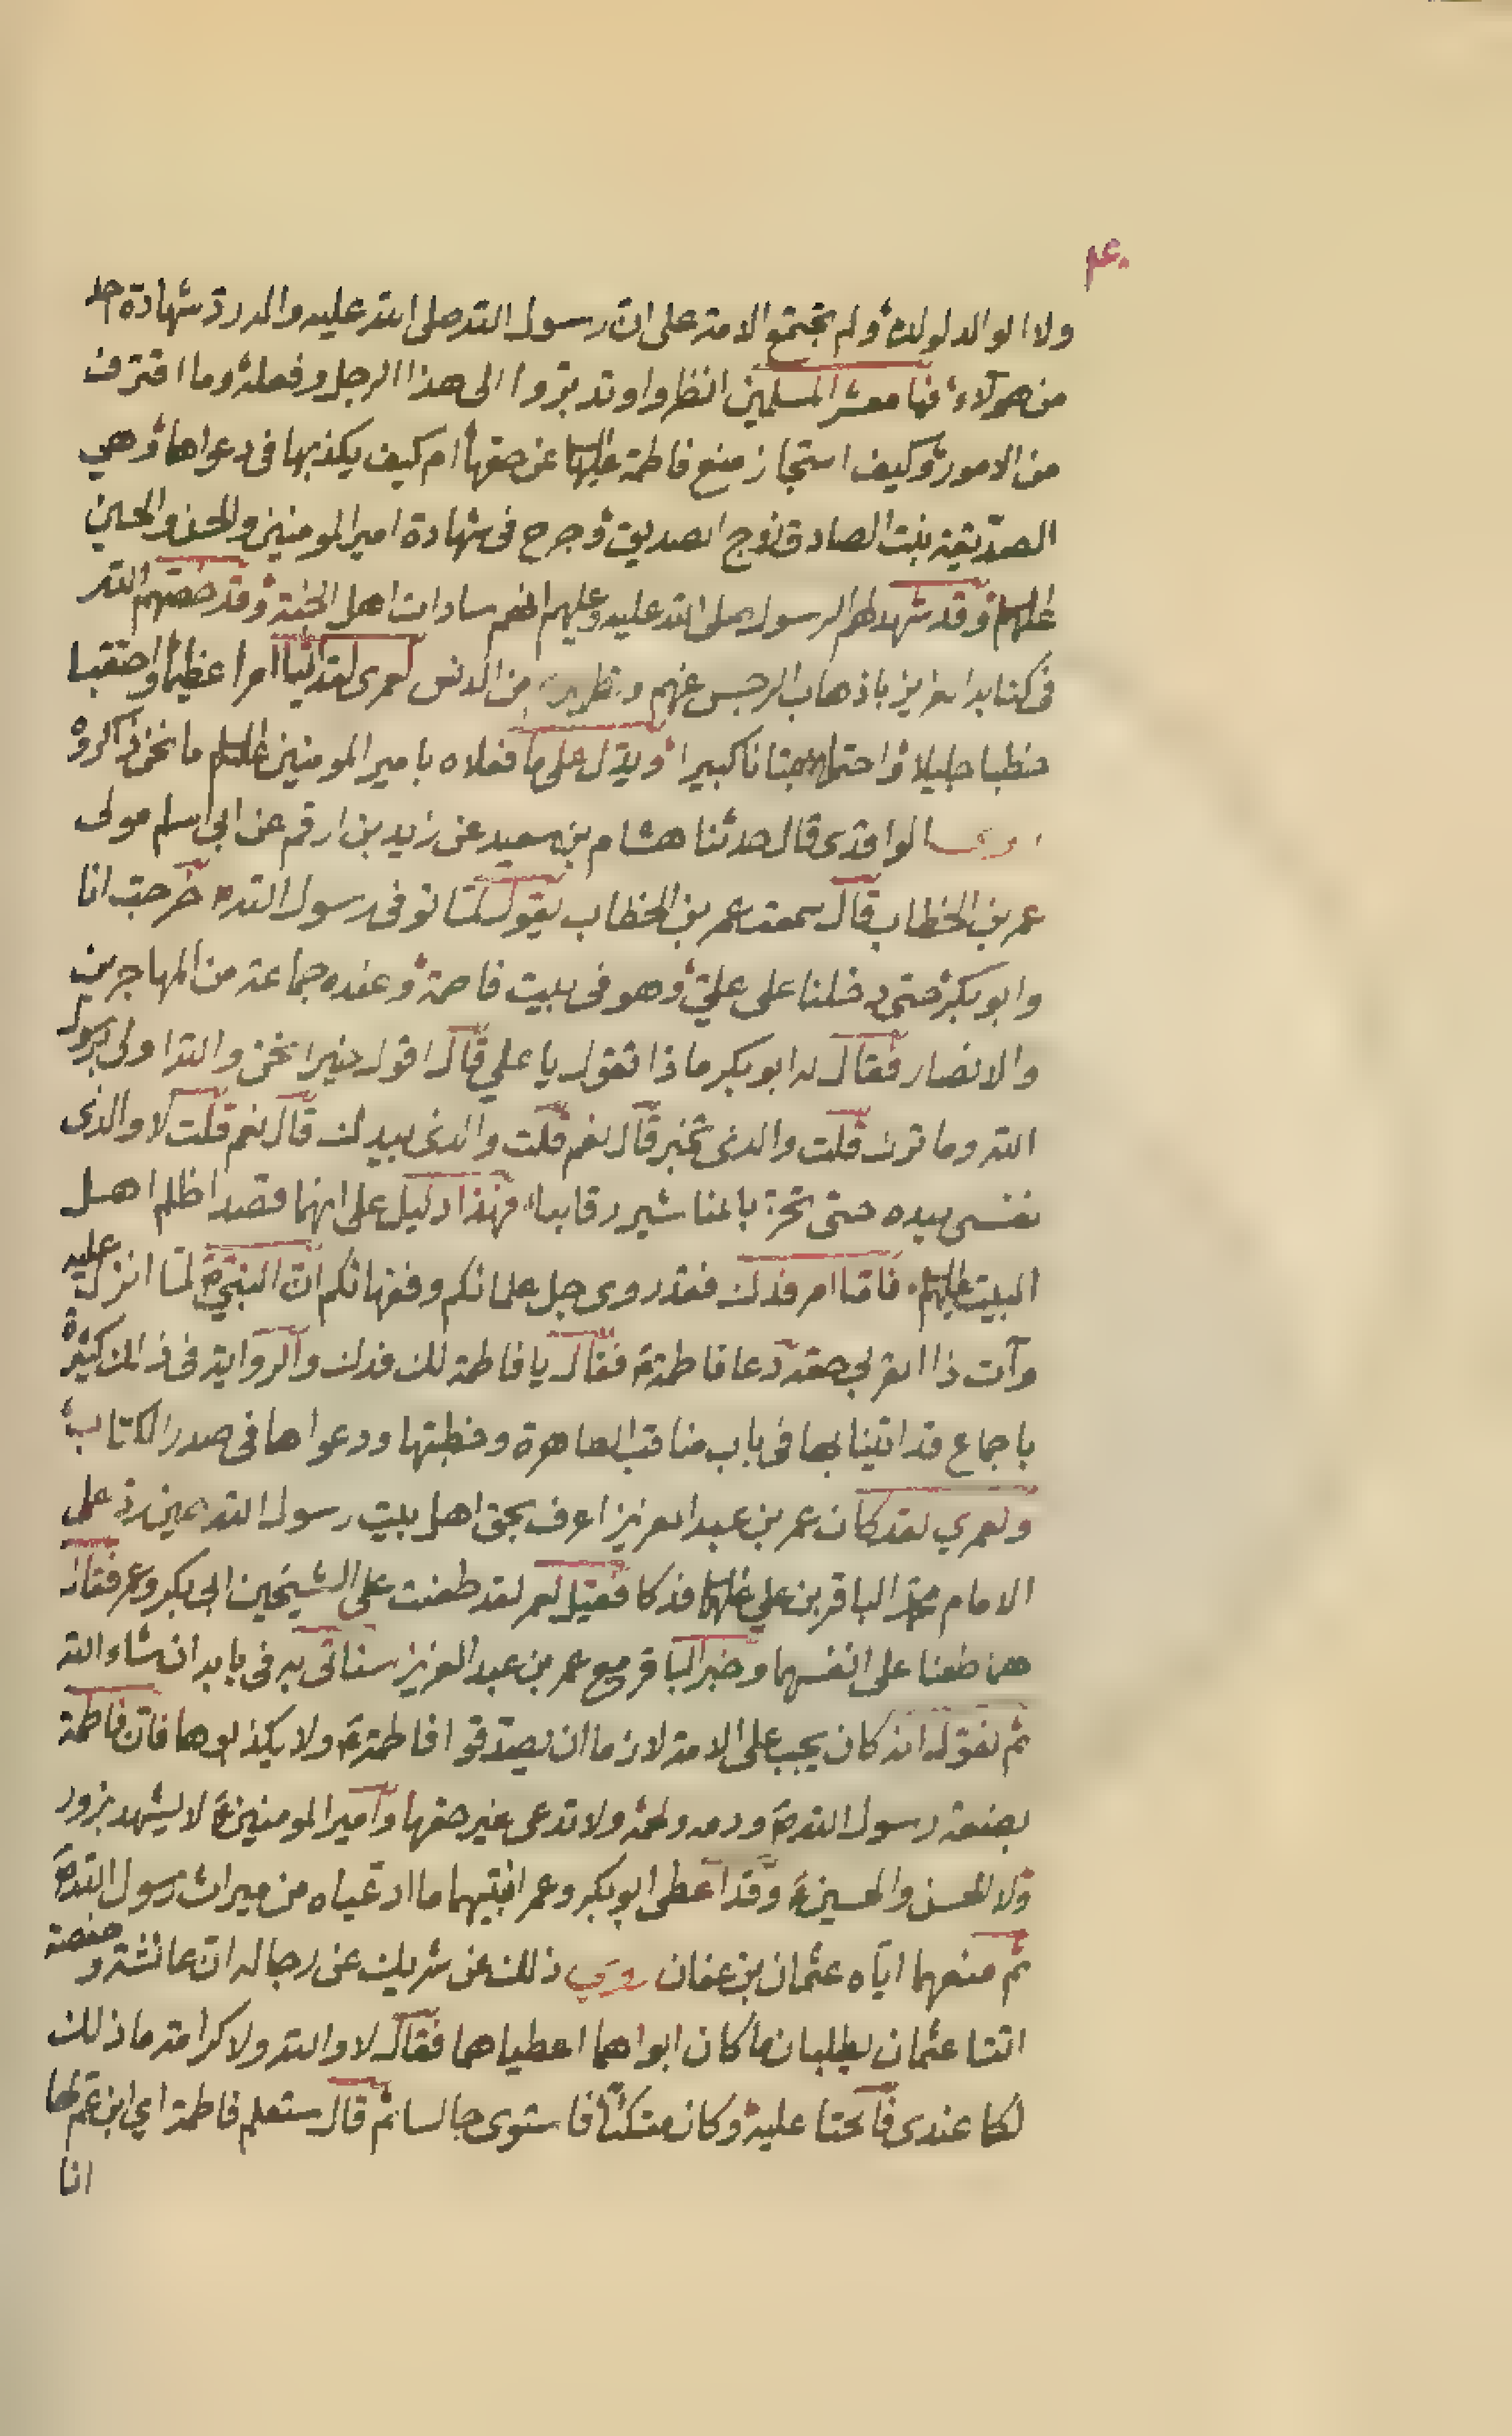 ولا الوالد لولده ولم تجتمع الامة على ان رسول الله صلى الله عليه واله رد شهادة احد
من هؤلاء فيا معشر المسلمين انظروا وتدبروا الى هذا الرجل وفعله وما اقترف
من الامور وكيف استجاز منع فاطمة عليها السلام عن حقها ام كيف يكذبها في دعواها وهي
الصديقة بنت الصادق زوج الصديق وجرح في شهادة امير المومنين والحسن والحسين
عليهم السلام وقد شهد لهم الرسول صلى الله عليه وعليهم انهم سادات اهل الجنة وقد خصهم الله
في كتابه العزيز باذهاب الرجس عنهم وتطهيرهم من الدنس لعمري لقد اتيا امرا عظيما واحتقبا
خطبا جليلا واحتملا بهتانا كبيرا ويدل على ما فعلاه بامير المومنين عليه السلام ما نحن ذاكروه
روى الواقدي قال حدثنا هشام بن سعيد عن زيد بن ارقم عن ابي اسلم مولى
عمر بن الخطاب قال سمعت عمر بن الخطاب يقول لما توفى رسول الله ص خرجت انا
وابو بكر حتى دخلنا على علي وهو في بيت فاطمة وعنده جماعة من المهاجرين
والانصار فقال له ابو بكر ماذا تقول يا علي قال اقول خيرا نحن والله اولى برسول
الله وما ترك قلت والذي بخيبر قال نعم قلت والذي بيدك قال نعم قلت لا والذي
نفسي بيده حتى تحز بالمناشير رقابنا فهذا دليل على انهما قصدا ظلم اهل
البيت عليهم السلام فاما امر فدك فقد روى جل علمائكم وفقهائكم ان النبي ص لما انزل عليه
وآت ذا القربى حقه دعا فاطمة ع فقال يا فاطمة لك فدك والرواية في ذلك كثيرة
باجماع قد اتينا بها في باب مناقب الطاهرة وخطبتها ودعواها في صدر الكتاب
ولعمري لقد كان عمر بن عبد العزيز اعرف بحق اهل بيت رسول الله حين رد على
الامام محمد الباقر بن علي عليهما السلام فدكا فقيل له لقد طعنت على الشيخين ابي بكر وعمر فقال
هما طعنا على انفسهما وخبر الباقر مع عمر بن عبد العزيز سناتي به في بابه ان شاء الله
ثم نقول انه كان يجب على الامة لازما ان يصدقوا فاطمة ع ولا يكذبوها فان فاطمة
بضعة رسول الله ص ودمه ولحمه ولا تدعى غير حقها وامير المومنين ع لا يشهد بزور
ولا الحسن والحسين ع وقد اعطى ابو بكر وعمر ابنتيهما ما ادعياه من ميراث رسول الله ص
ثم منعهما اياه عثمان بن عفان روى ذلك عن شريك عن رجاله ان عائشة وحفصة
اتتا عثمان يطلبان ما كان ابواهما اعطياهما فقال لا والله ولا كرامة ما ذلك
لكما عندي فالحتا عليه وكان متكئا فاستوى جالسا ثم قال ستعلم فاطمة اي ابن عم لها
انا